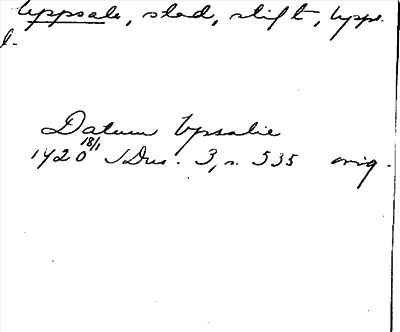 Uppsala, stad, stift, Upps.
l.
Datum Vpsalie
1420 18/1 SDns. 3, s. 535 orig.